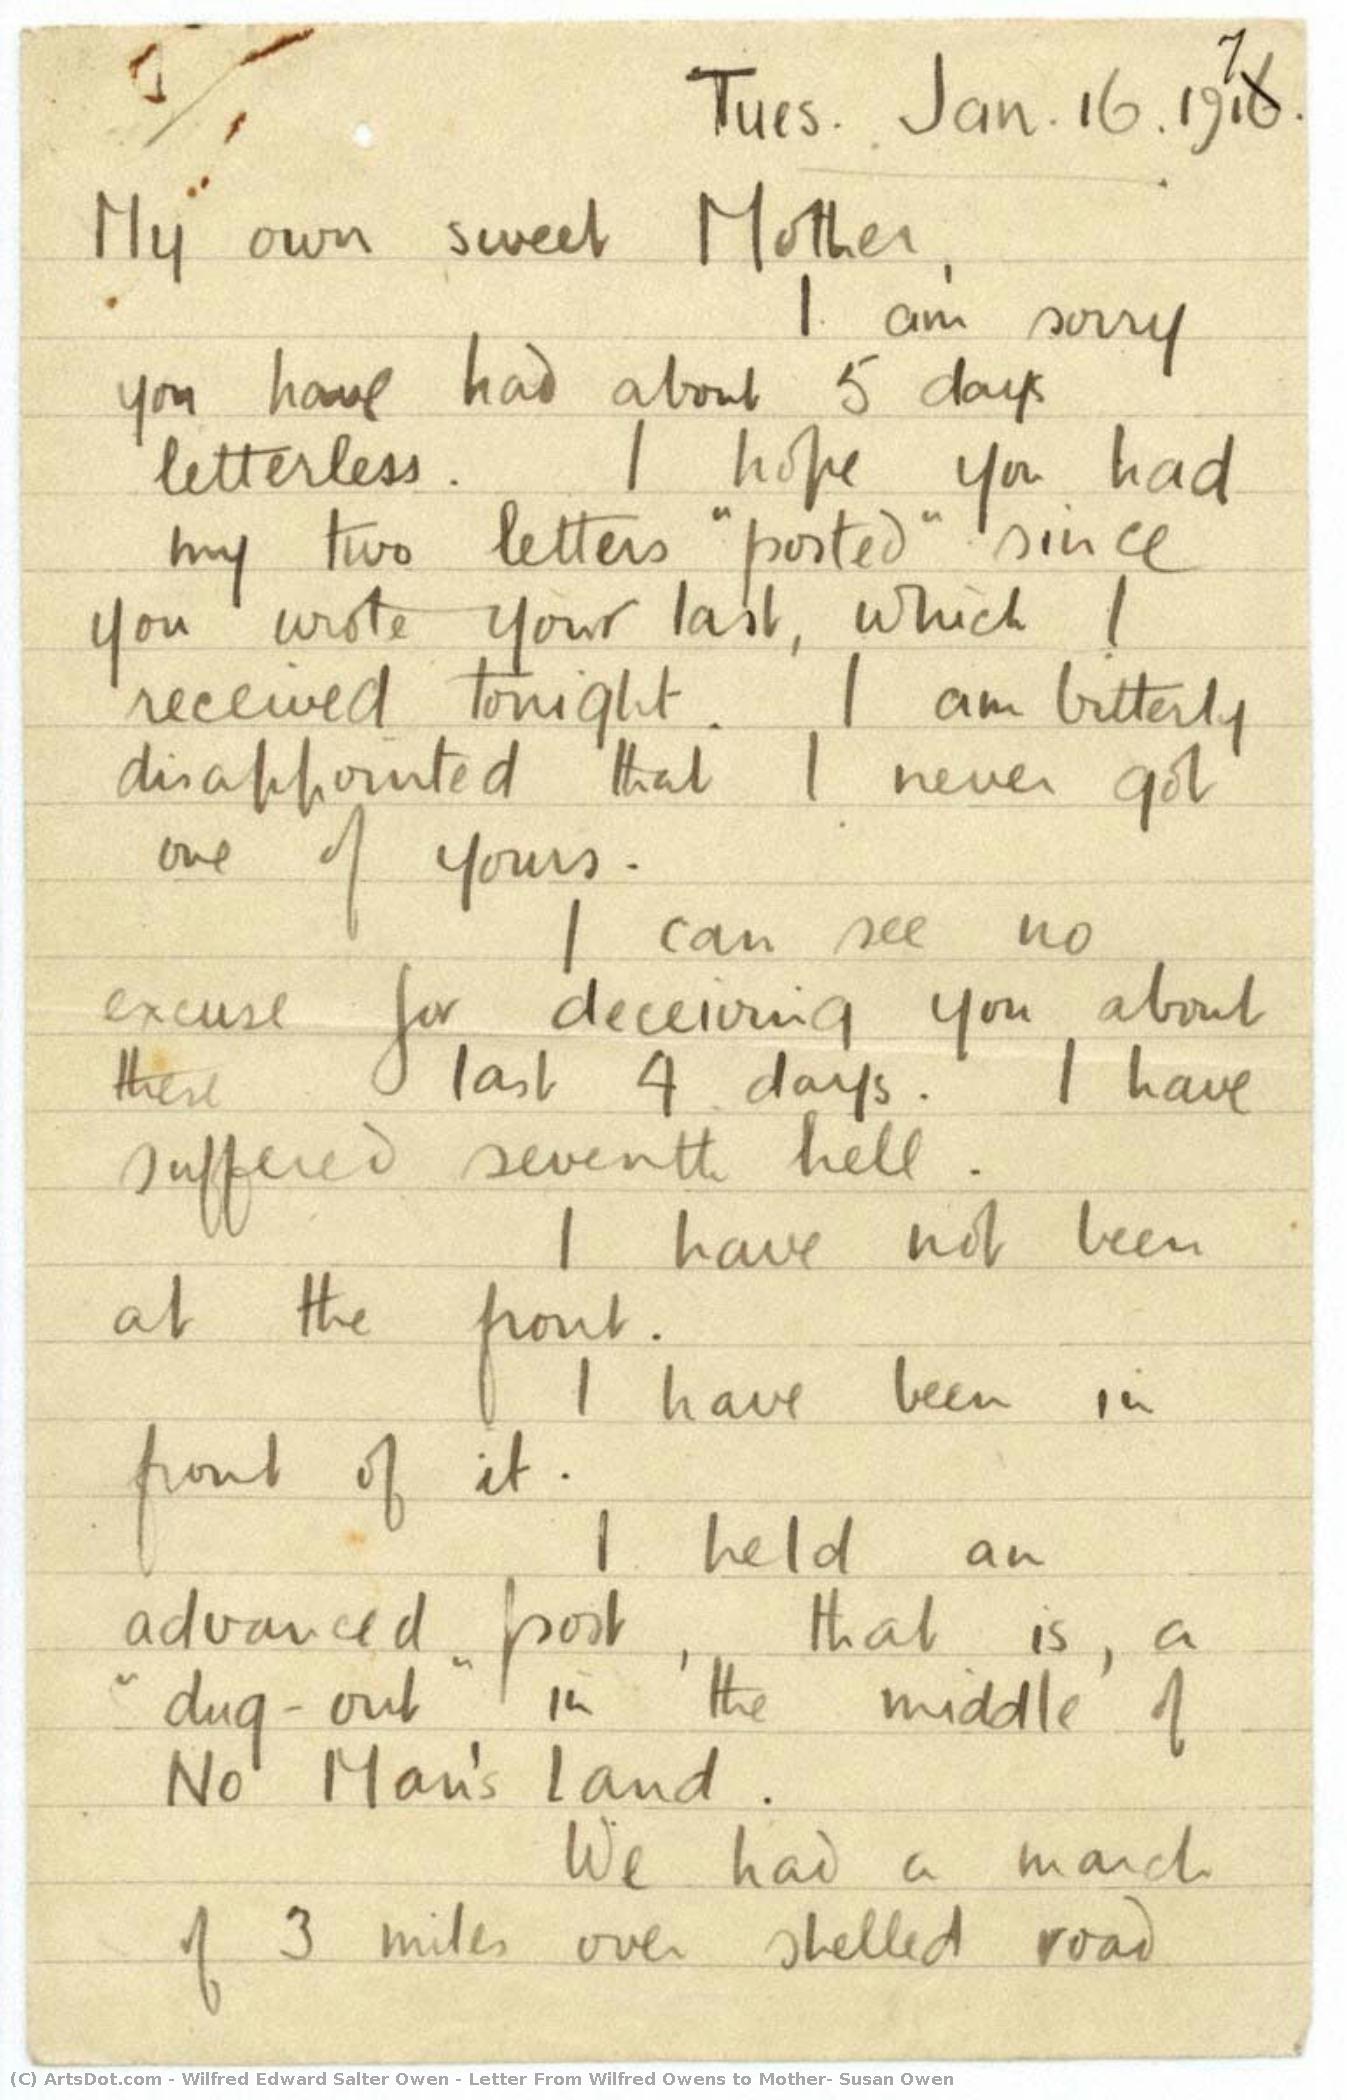 Tues. Jan. 16. 1917.
My own sweet Mother,
I am sorry
you have had about 5 days
letterless. I hope you had
my two letters "posted" since
you wrote your last, which I
received tonight. I am bitterly
disappointed that I never got
one of yours.
I can see no
excuse for deceiving you about
these last 4 days. I have
suffered seventh hell.
I have not been
at the front.
I have been in
front of it.
I held an
advanced post, that is, a
"dug-out" in the middle of
No Man's Land.
We had a march
of 3 miles over shelled road
(C) ArtsDot.com - Wilfred Edward Salter Owen - Letter From Wilfred Owens to Mother- Susan Owen